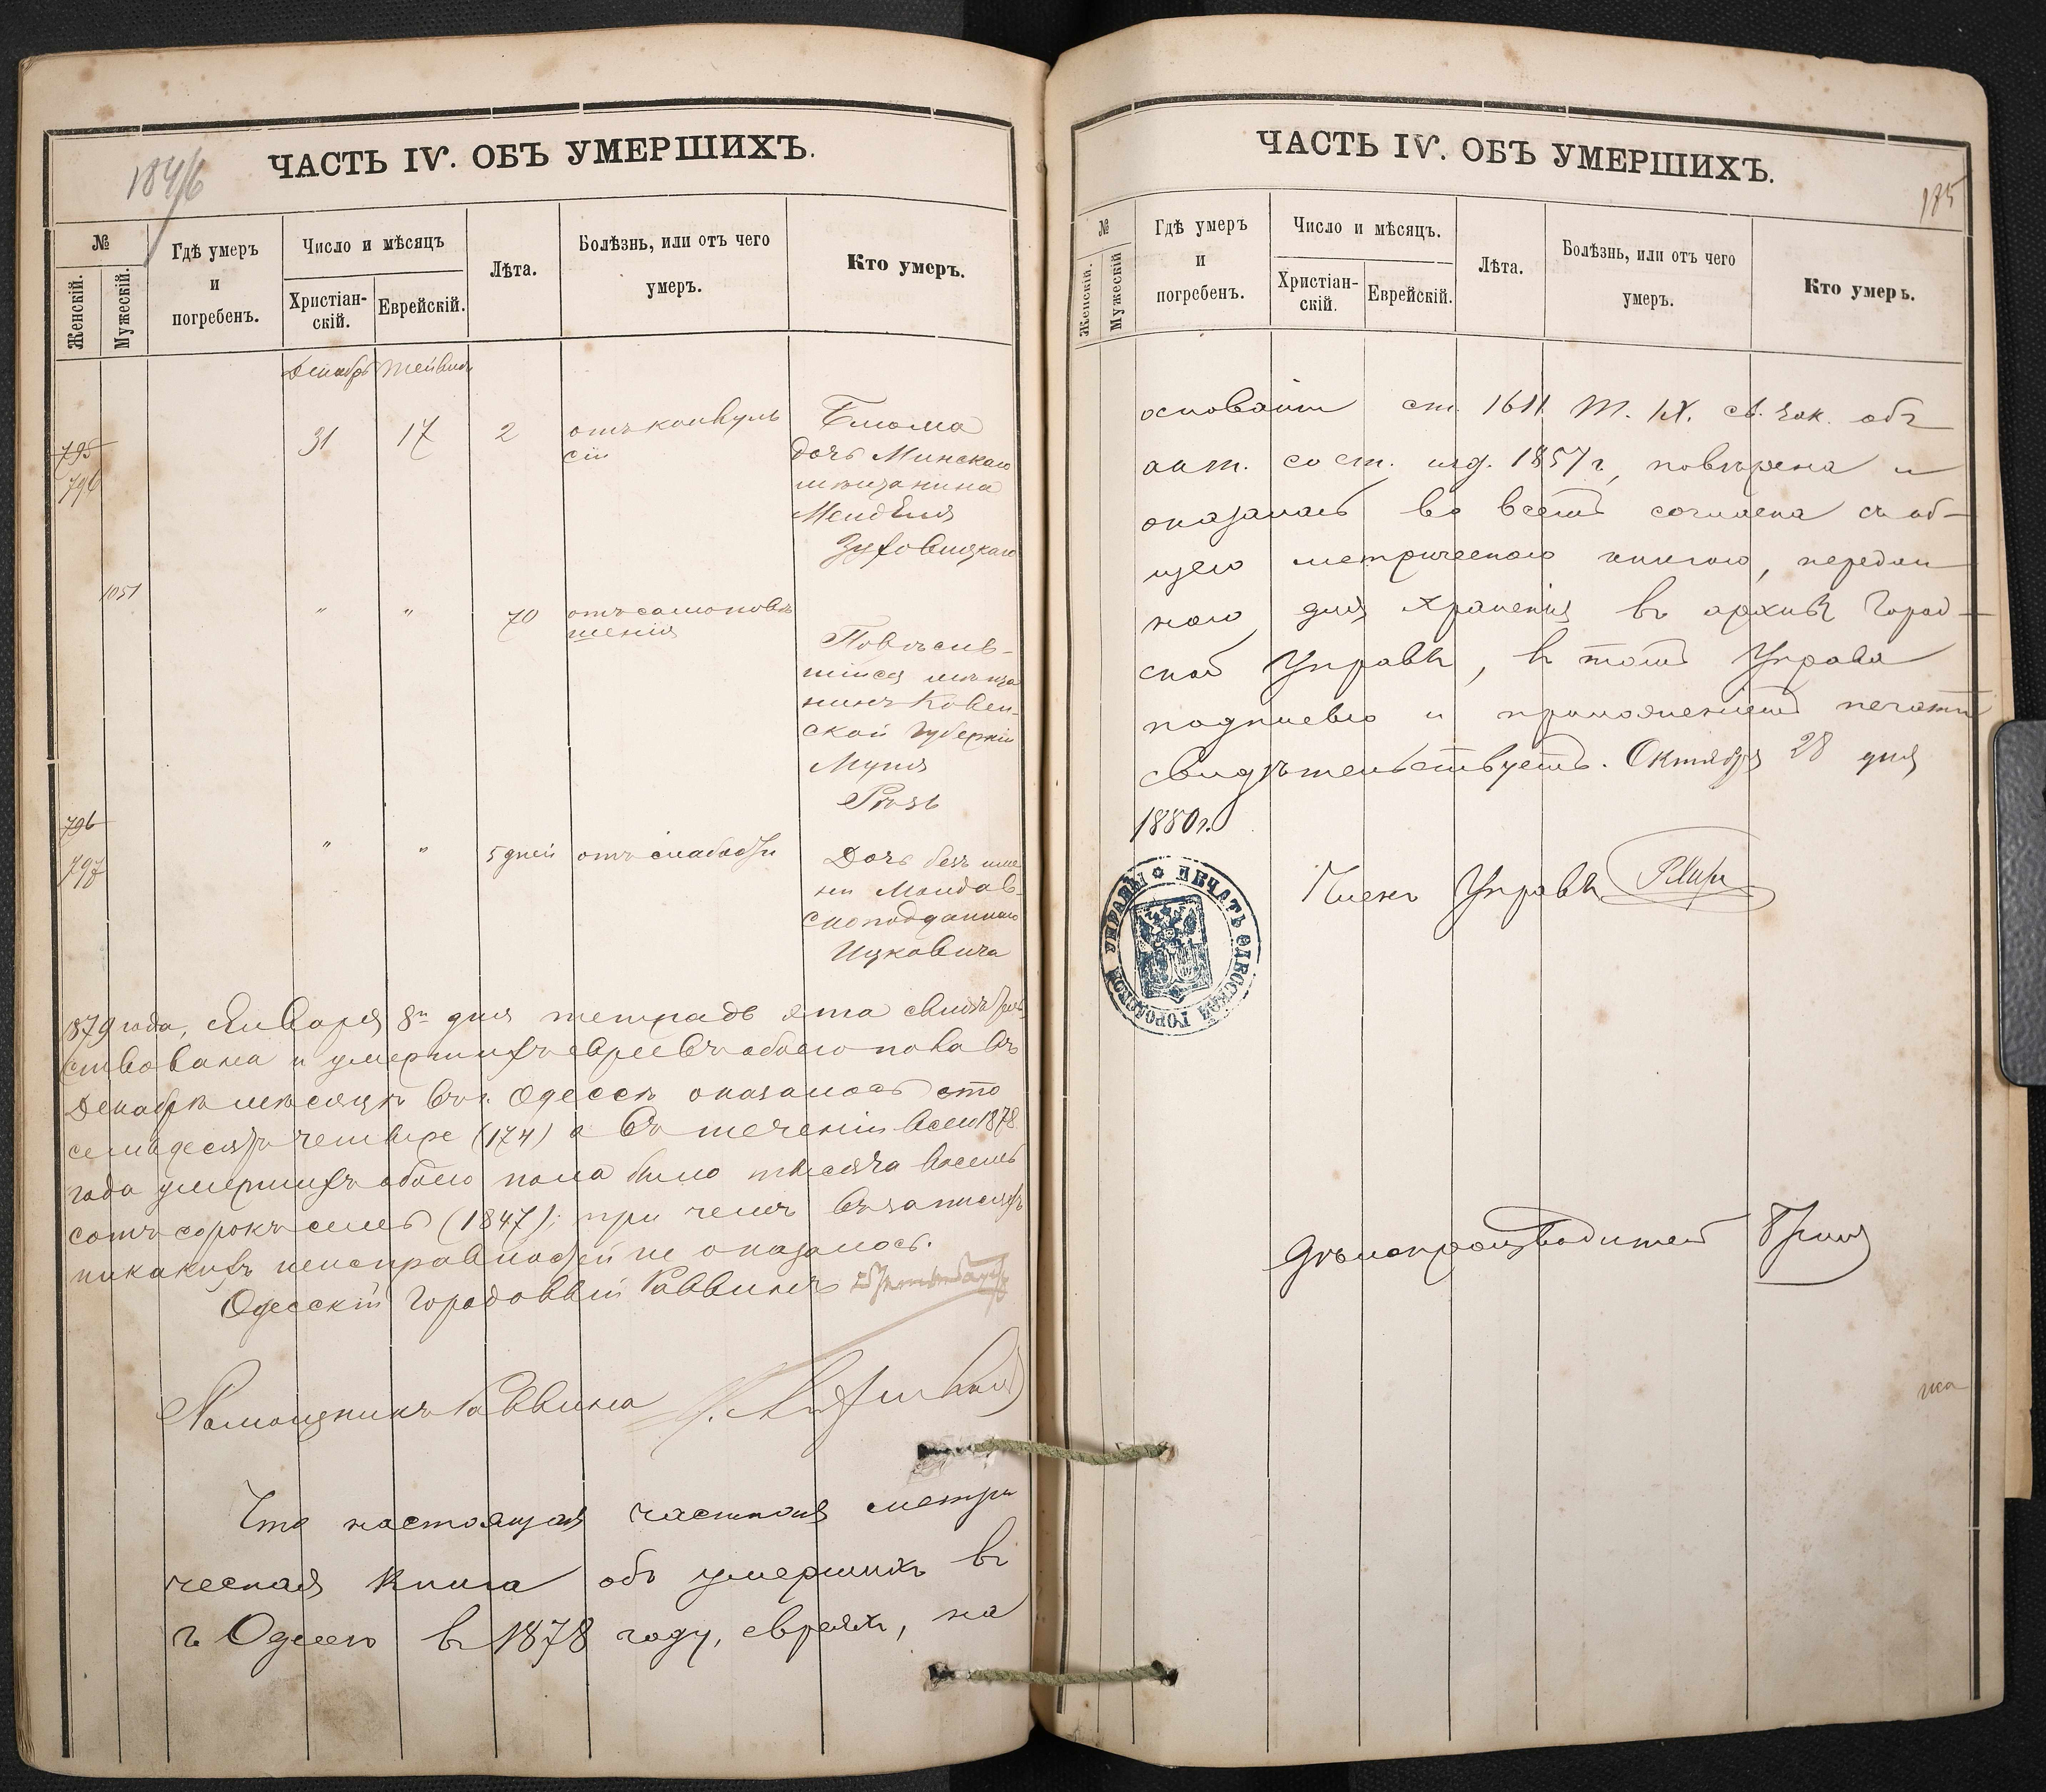 184/6
ЧАСТЬ IV. ОБЪ УМЕРШИХЪ.
№
Женскій.
Мужескій.
Гдѣ умеръ
и
погребенъ.
Число и мѣсяцъ
Христіан-
скій.
Еврейскій.
Лѣта.
Болѣзнь, или отъ чего
умеръ.
Кто умеръ.
Декабрь
795
796
31
17
2
отъ конвуль
сіи
Блюма
дочь Минскаго
мѣщанина
Менделя
1051
"
"
70
отъ самоповѣ
шенія
Повѣсив-
шійся мѣща
нинъ Ковен-
ской губерніи
796
797
"
"
5 дней
отъ слабости
Дочь безъ име
ни Молдав-
скоподданнаго
Ицковича
1879 года, Января 8го дня тетрадь эта свидѣтель
ствована и умершихъ евреевъ обоего пола въ
Декабрѣ мѣсяцѣ въ г. Одессѣ оказалось сто
семьдесятъ четыре (174) а въ теченіи всего 1878
года умершихъ обоего пола было тысяча восемь
сотъ сорокъ семь (1847); при чемъ въ записяхъ
никакихъ неисправностей не оказалось.
Одесскій Городовый Раввинъ
Помощникъ Раввина
Что настоящая частная метри
ческая книга объ умершихъ въ
г. Одессѣ въ 1878 году, евреяхъ, на
ЧАСТЬ IV. ОБЪ УМЕРШИХЪ.
175
№
Женскій.
Мужескій
Гдѣ умеръ
и
погребенъ.
Число и мѣсяцъ.
Христіан-
скій.
Еврейскій.
Лѣта.
Болѣзнь, или отъ чего
умеръ.
Кто умеръ.
основаніи ст. 1611 т. IX. св. зак. объ
акт. сост. изд. 1857 г, повѣрена и
оказалась во всемъ согласна съ об-
щею метрическою книгою, передан
ною для храненія въ архивъ Город-
ской Управы, въ томъ Управа
подписью и приложеніемъ печати
свидѣтельствуетъ. Октября 28 дня
1880 г.
ПЕЧАТЬ ОДЕССКОЙ ГОРОДСКОЙ УПРАВЫ
Членъ Управы
Дѣлопроизводитель